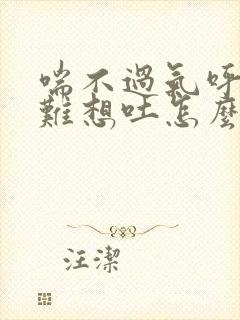 喘不過氣呼
難想吐怎麼
汪潔